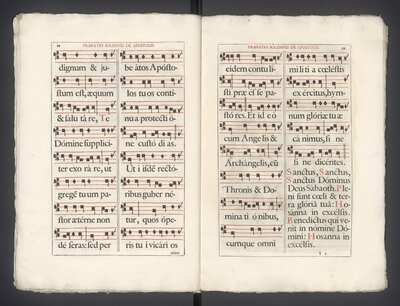 PRÆFATIO SOLEMNIS DE APOSTOLIS
dignum & ju-
stum est, æquum
& salu tá re, Te
Dómine supplici-
ter exo rá re, ut
gregē tu um pa-
stor ætérne non
dé seras: sed per
be átos Apósto-
los tu os conti-
nu a protecti ó-
ne custó di as.
Ut i ísdē rectó-
ribus guber né-
tur, quos ópe-
ris tu i vicári os
PRÆFATIO SOLEMNIS DE APOSTOLIS
eidem contu li-
sti præ es se pa-
stó res. Et id eo
cum Ange lis &
Archángelis, cū
Thronis & Do-
mina ti ó nibus,
cumque omni
mi li ti a cœlestis
ex ércitus, hym-
num glóriæ tu æ
cá nimus, si ne
fi ne dicéntes.
Sanctus, Sanctus,
Sanctus Dóminus
Deus Sábaoth. Ple-
ni sunt cœli & ter-
ra glóriâ tuâ: Ho-
sanna in excélsis.
Benedíctus qui ve-
nit in nómine Dó-
mini: Hosanna in
excélsis.